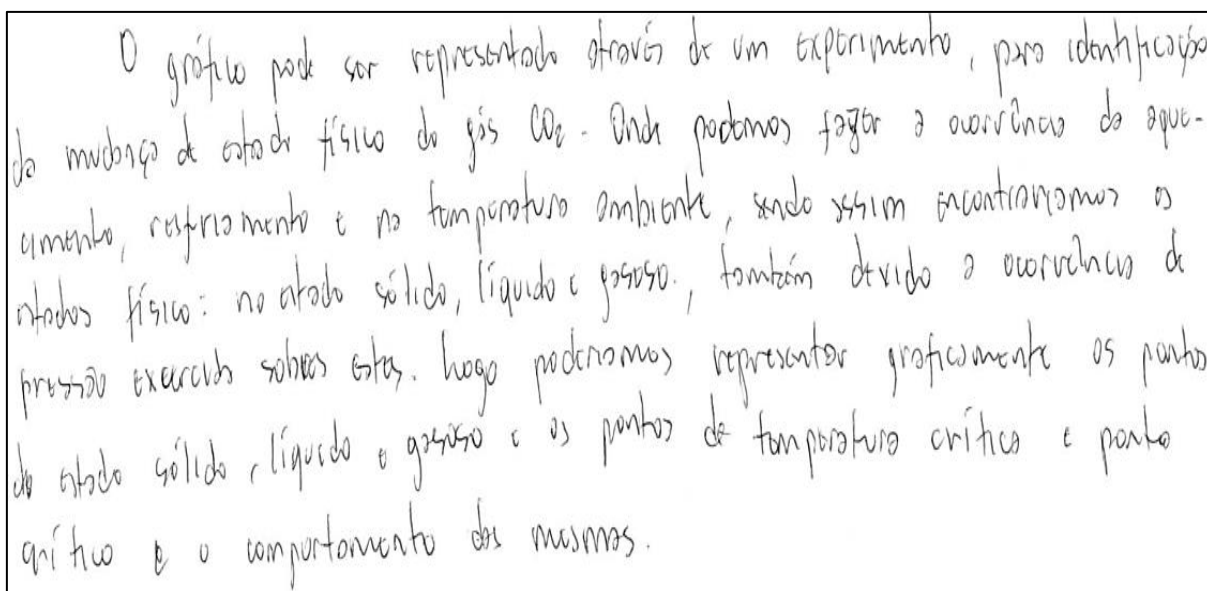 O gráfico pode ser representado através de um experimento, para identificação
da mudança de estado físico do gás CO₂. Onde podemos fazer a ocorrência do aque-
cimento, resfriamento e na temperatura ambiente, sendo assim encontraríamos os
estados físico: no estado sólido, líquido e gasoso., também devido a ocorrência de
pressão exercida sobres estes. Logo poderíamos representar graficamente os pontos
do estado sólido, líquido e gasoso e os pontos de temperatura crítica e ponto
crítico e o comportamento das mesmas.